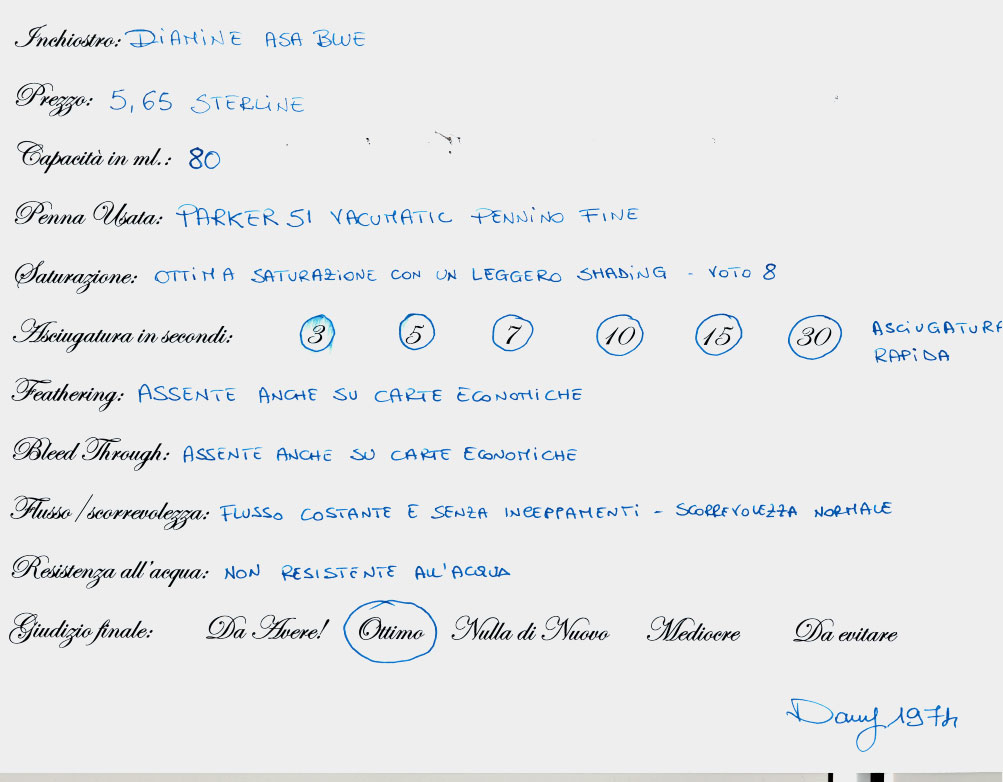 Inchiostro: DIAMINE ASA BLUE
Prezzo: 5,65 STERLINE
Capacità in ml.: 80
Penna Usata: PARKER 51 VACUMATIC PENNINO FINE
Saturazione: OTTIMA SATURAZIONE CON UN LEGGERO SHADING - VOTO 8
Asciugatura in secondi: 3 5 7 10 15 30 ASCIUGATURA
RAPIDA
Feathering: ASSENTE ANCHE SU CARTE ECONOMICHE
Bleed Through: ASSENTE ANCHE SU CARTE ECONOMICHE
Flusso/scorrevolezza: FLUSSO COSTANTE E SENZA INCEPPAMENTI - SCORREVOLEZZA NORMALE
Resistenza all'acqua: NON RESISTENTE ALL'ACQUA
Giudizio finale: Da Avere! Ottimo Nulla di Nuovo Mediocre Da evitare
Dany 1974